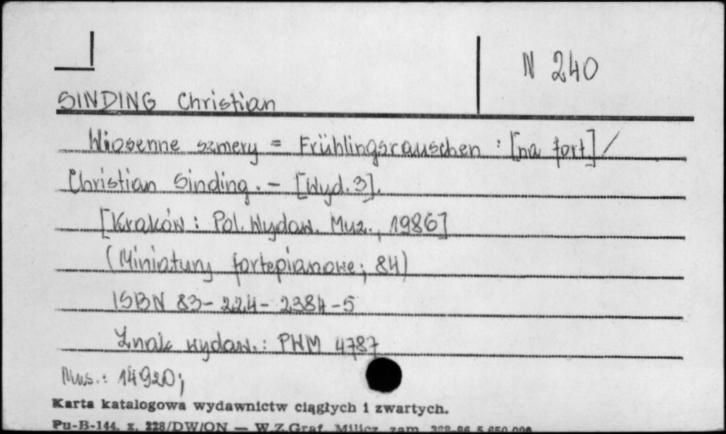 N 240
SINDING Christian
Wiosenne szmery = Frühlingsrauschen : [na fort] /
Christian Sinding. - [Wyd. 3].
[Kraków : Pol. Wydaw. Muz., 1986]
(Miniatury fortepianowe; 84)
ISBN 83-224-2384-5
Znak wydaw.: PWM 4787
Mus.: 14920;
Karta katalogowa wydawnictw ciągłych i zwartych.
Pu-B-144, z. 228/DW/ON — W.Z.Graf. Milicz zam.